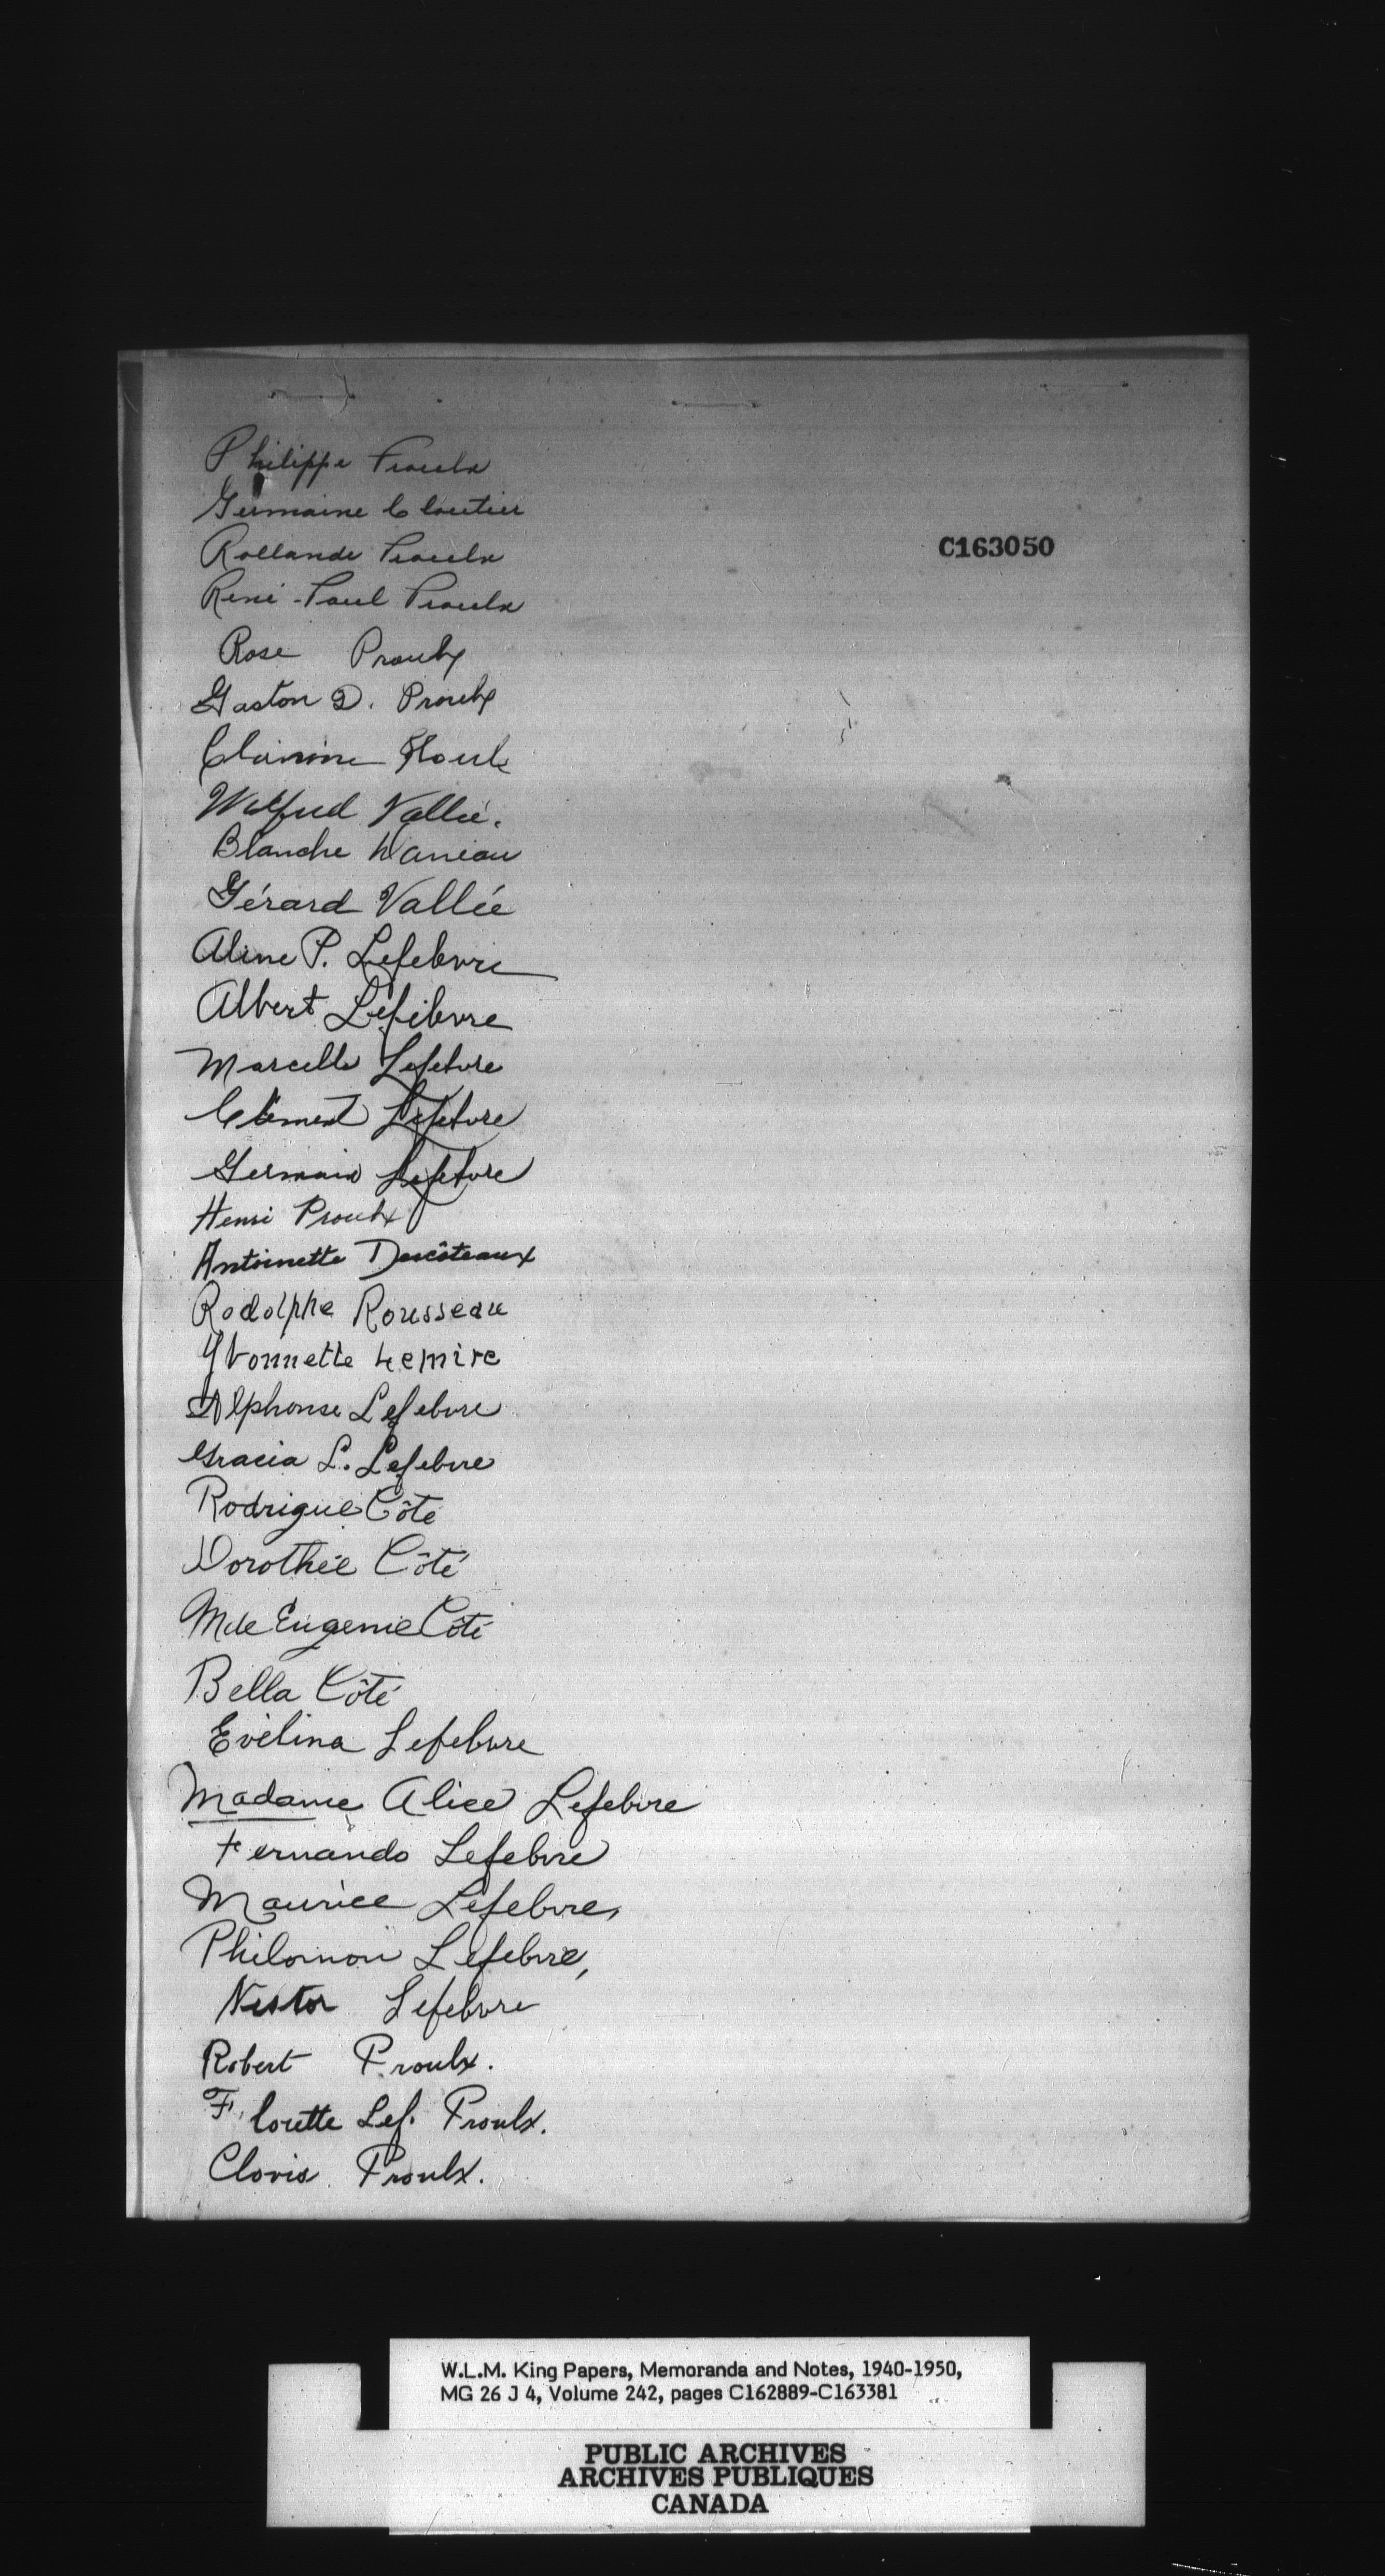 Philippe Proulx
Germaine Cloutier
Rollande Proulx
C163050
René-Paul Proulx
Rose Proulx
Gaston D. Proulx
Wilfrid Vallée.
Blanche
Gérard Vallée
Aline P. Lefebvre
Albert Lefebvre
Marcelle Lefebvre
Clément Lefebvre
Germain Lefebvre
Henri Proulx
Antoinette Descôteaux
Rodolphe Rousseau
Yvonnette Lemire
Alphonse Lefebvre
Gracia L. Lefebvre
Rodrigue Côté
Dorothée Côté
Mde Eugenie Côté
Bella Côté
Evélina Lefebvre
Madame Alice Lefebvre
Fernando Lefebvre
Maurice Lefebvre,
Philomon Lefebvre,
Nestor Lefebvre
Robert Proulx.
Florette Lef. Proulx.
Clovis Proulx.
W.L.M. King Papers, Memoranda and Notes, 1940-1950,
MG 26 J 4, Volume 242, pages C162889-C163381
PUBLIC ARCHIVES
ARCHIVES PUBLIQUES
CANADA